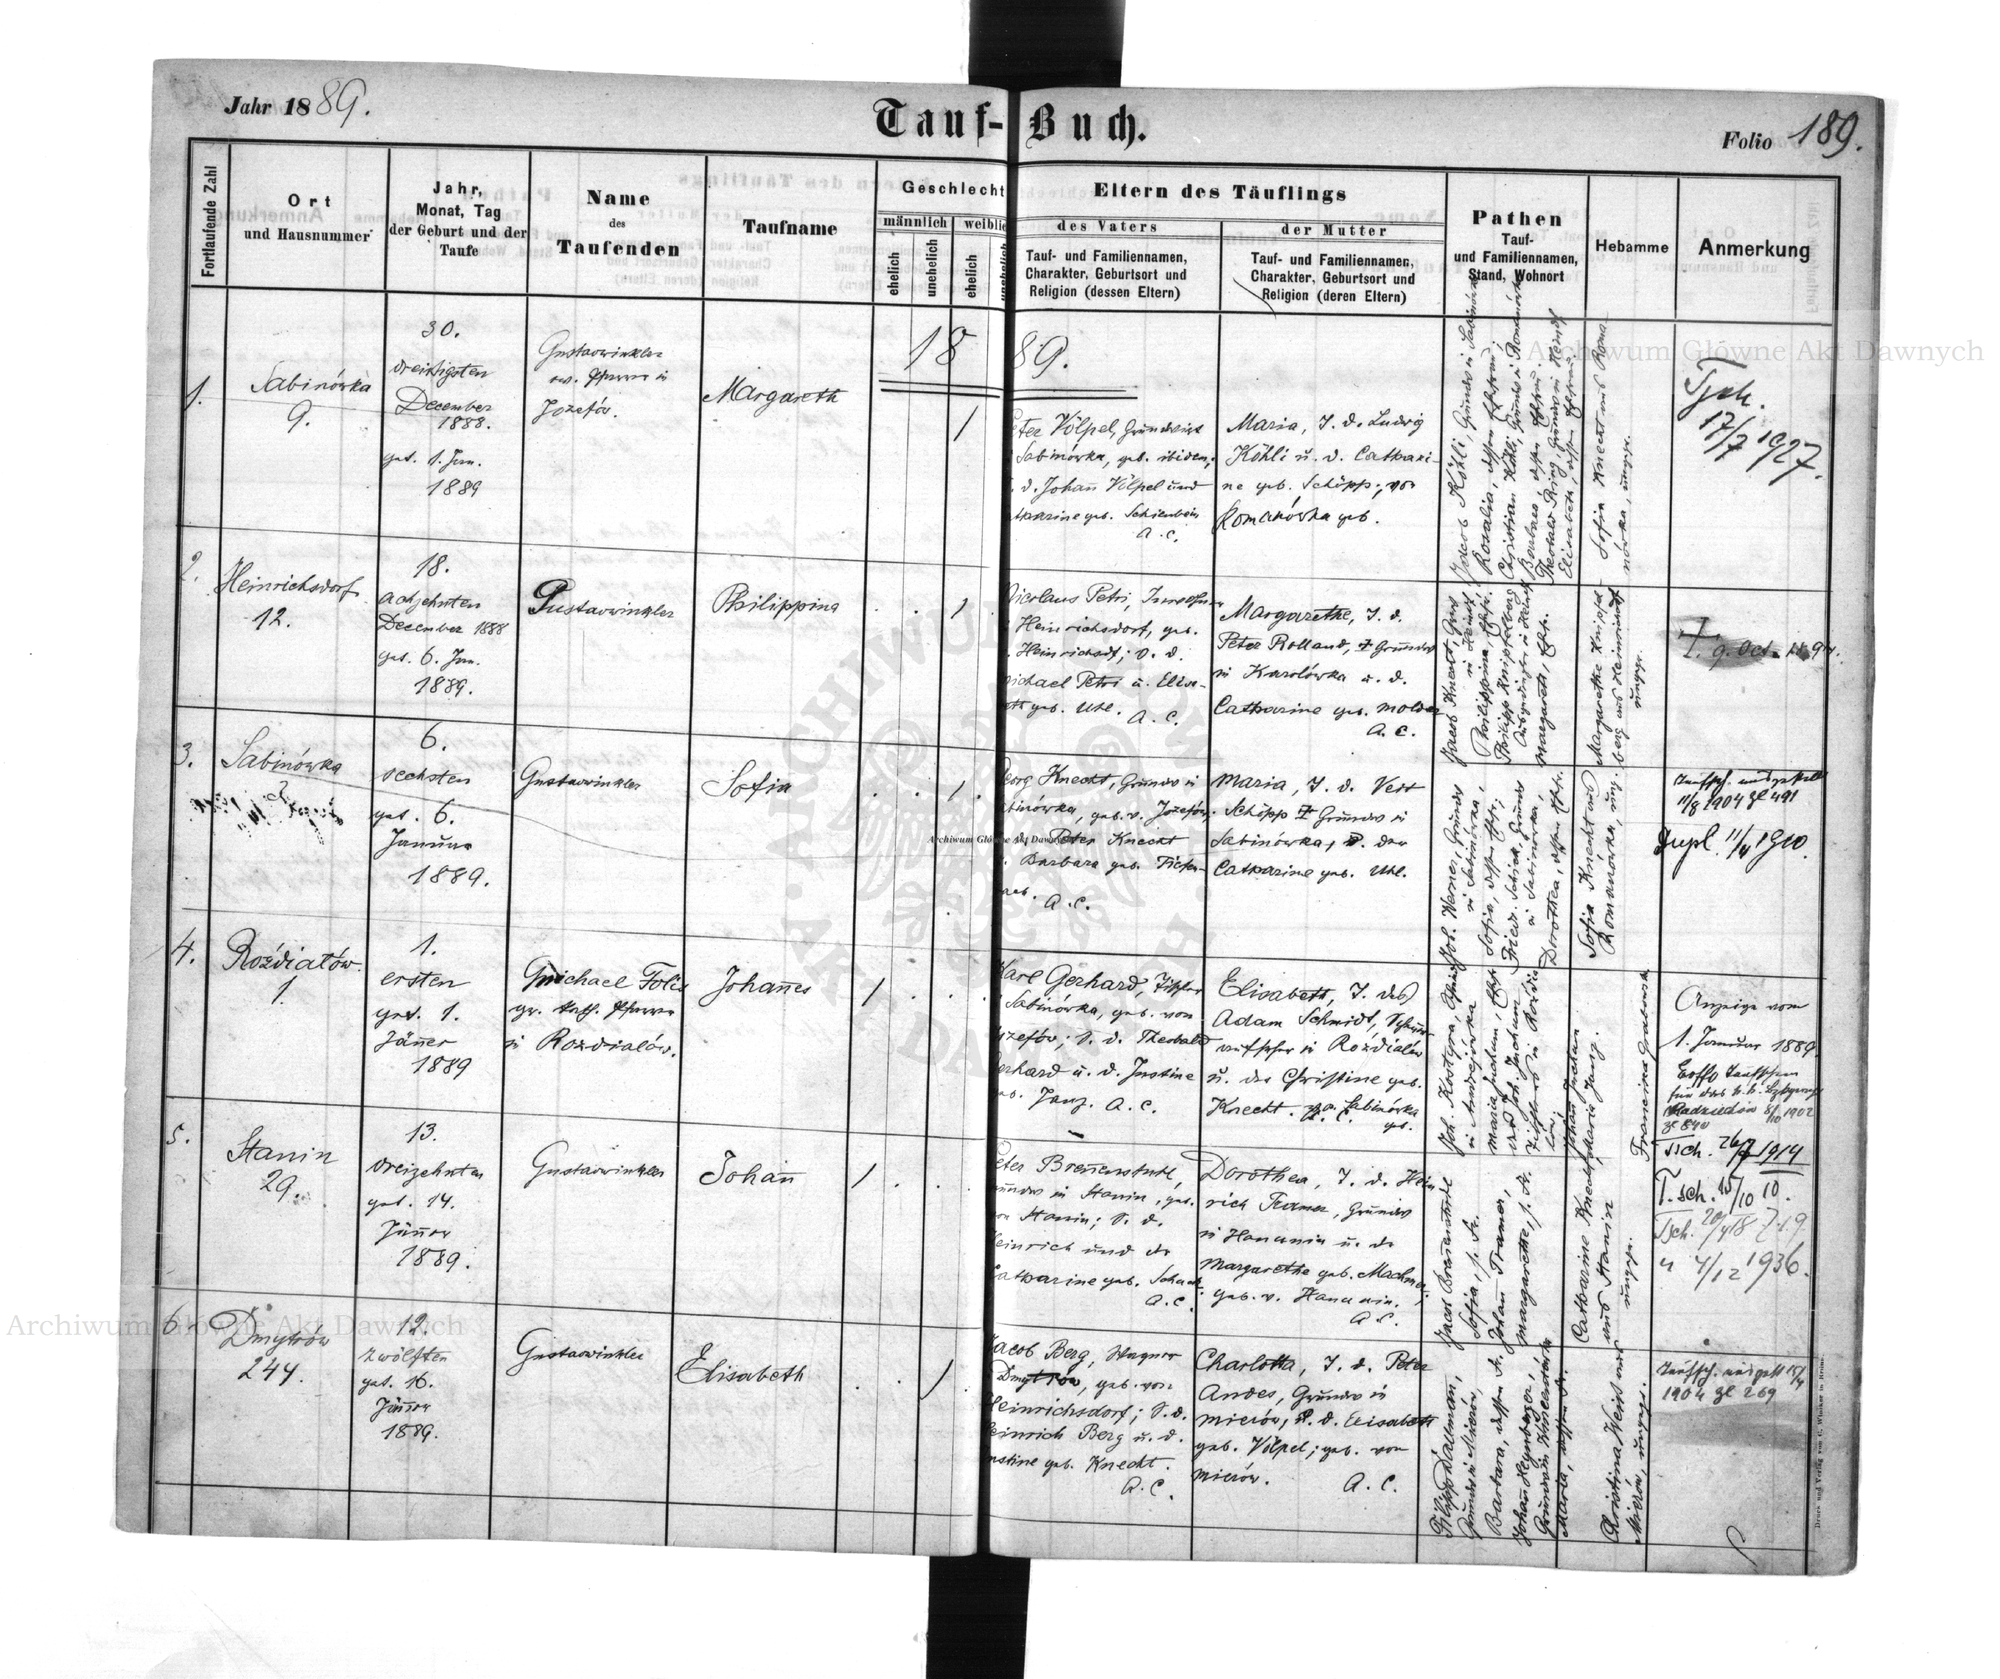 Jahr 1889.
Tauf-Buch.
Folio 189.
Fortlaufende Zahl
Ort
und Hausnummer
Jahr,
Monat, Tag
der Geburt und der
Taufe
Name
des
Taufenden
Taufname
Geschlecht
männlich
weiblic
ehelich
unehelich
ehelich
unehelich
Eltern des Täuflings
des Vaters
Tauf- und Familiennamen,
Charakter, Geburtsort und
Religion (dessen Eltern)
der Mutter
Tauf- und Familiennamen,
Charakter, Geburtsort und
Religion (deren Eltern)
Pathen
Tauf-
und Familiennamen,
Stand, Wohnort
Hebamme
Anmerkung
1889.
1.
Sabinówka
9.
30.
dreissigsten
December
1888.
get. 1. Jan.
1889
Gustav Winkler
ev. Pfarrer in
Józefów.
Margareth
1
eter Völpel, Grundwirt
Sabinówka, geb. ibidem;
d. Johann Völpel und
atharine geb. Schienbein
A. C.
Maria, T. d. Ludwig
Köhli u. d. Cathari-
ne geb. Schöpp; von
Romanówka geb.
Jacob Köhli, Grundw. in Sabinówka
Rosalia, dessen Ehefrau;
Christian Köhli, Grundw. in Romanówka
Barbara, dessen Ehefrau;
Theobald Ring, Grundw. in Heindf.
Elisabeth, dessen Ehefrau.
Sofia Knecht aus Roma-
nówka, ungepr.
Tsch.
17/7 1927.
2.
Heinrichsdorf
12.
18.
achzehnten
December 1888
get. 6. Jan.
1889.
Gustav Winkler
Philippina
1
Nicolaus Petri, Inwohner
Heinrichsdorf, geb.
Heinrichsdf; S. d.
Michael Petri u. Elisa-
beth geb. Uhl. A. C.
Margarethe, T. d.
Peter Rolland, † Grundw.
in Karolówka u. d.
Catharine geb. Molder
A. C.
Jacob Knecht, Grundw.
in Heindf.
Philippina, Ehefr.
Philipp Knipfelberg
Margareth, Ehefr.
Margarethe Knipfel-
berg aus Heinrichsdf
ungepr.
†. 9. Oct. 1894.
3.
Sabinówka
6.
sechsten
get. 6.
Januar
1889.
Gustav Winkler
Sofia
1.
Georg Knecht, Grundw. in
abinówka, geb. v. Józefów;
Peter Knecht
Barbara geb. Tiefen-
A. C.
Maria, T. d. Veit
Schöpp † Grundw. in
Sabinówka, u. der
Catharine geb. Uhl.
Joh. Werner, Grundw.
in Sabinówka,
Sofia, dessen Ehefr.;
Friedr. Schick, Grundw.
in Sabinówka,
Dorothea, dessen Ehefr.
Sofia Knecht aus
Romanówka, ung.
Taufsch. ausgestellt
11/8 1904 Zl 491
Dupl. 11/4 1910.
4.
Rożdiałów
1.
1.
ersten
get. 1.
Jänner
1889
Michael Folis
gr. kath. Pfarrer
in Rozdialów.
Johannes
1
Karl Gerhard, Tischler
Sabinówka, geb. von
Józefów; S. d. Theobald
Gerhard u. d. Justine
geb. Janz. A. C.
Elisabeth, T. des
Adam Schmidt,
aufseher in Rożdiałów
u. der Christine geb.
Knecht. v. Sabinówka
geb. A. C.
Joh. Kostyra,
in Andrejówka
Maria Juchum, Ehefr.
des Jos. Juchum
Johann Juchum
Maria Janz.
Francina Grabowska
Anzeige vom
1. Januar 1889.
Radziechów 8/10 1902
Zl 840
Tsch. 26/7 1914
5.
Stanin
29.
13.
dreizehnten
get. 14.
Jänner
1889.
Gustav Winkler
Johann
1
Peter Brennenstuhl,
Grundw. in Stanin, geb.
von Stanin; S. d.
Heinrich und der
Catharine geb. Schaub.
A. C.
Dorothea, T. d. Hein
rich Tramer, Grundw.
in Hanunin u. der
Margarethe geb. Machmer;
geb. v. Hanunin.
A. C.
Jacob Brennenstuhl
Sofia, s. Fr.
Johann Tramer,
Margarethe, s. Fr.
Catharine Knecht
aus Stanin
ungepr.
T. sch. 15/10 10.
Tsch. 20/4 18 Z. 19.
" 4/12 1936.
6
Dmytrów
244.
12.
zwölften
get. 16.
Jänner
1889.
Gustav Winkler
Elisabeth
1
Jacob Berg, Wagner
Dmytrów, geb. von
Heinrichsdorf; S. d.
Heinrich Berg u. d.
Justine geb. Knecht.
A. C.
Charlotta, T. d. Peter
Andes, Grundw. in
Mierów, u. d. Elisabeth
geb. Völpel; geb. von
Mierów. A. C.
Filipp Daumann,
Grundw. in Mierów,
Barbara, dessen Fr.
Johann Hegenberger,
Maria, dessen Fr.
Christina Weiss aus
Mierów, ungepr.
Taufsch. ausgest 15/4
1904 Zl 269
Archiwum Główne Akt Dawnych
Archiwum Główne Akt Dawnych
Archiwum Główne Akt Dawnych
ARCHIWUM GŁÓWNE AKT DAWNYCH